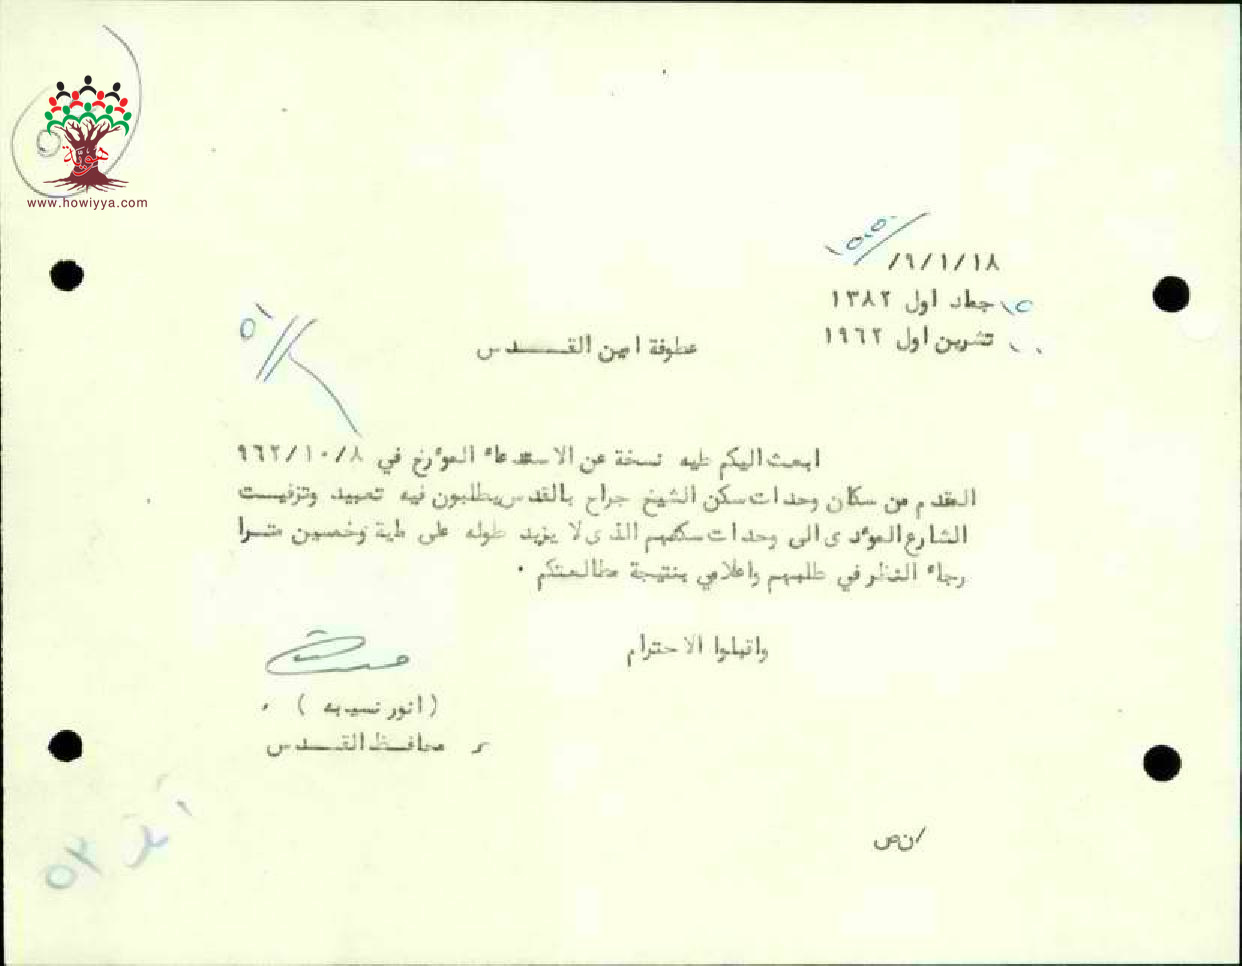 هويّة
www.howiyya.com
١٨/١/٩/
١٥ جماد اول ١٣٨٢
تشرين اول ١٩٦٢
عطوفة امين القـــــدس
ابعث اليكم طيه نسخة عن الاستدعاء المؤرخ في ٩٦٢/١٠/٨
المقدم من سكان وحدات سكن الشيخ جراح بالقدس يطلبون فيه تعبيد وتزفيت
الشارع المؤدى الى وحدات سكنهم الذى لا يزيد طوله على مئة وخمسين مترا
رجاء النظر في طلبهم واعلامي بنتيجة مطالعتكم .
واقبلوا الاحترام
( انور نسيبه )
محافــظ القـــدس
/ن ص